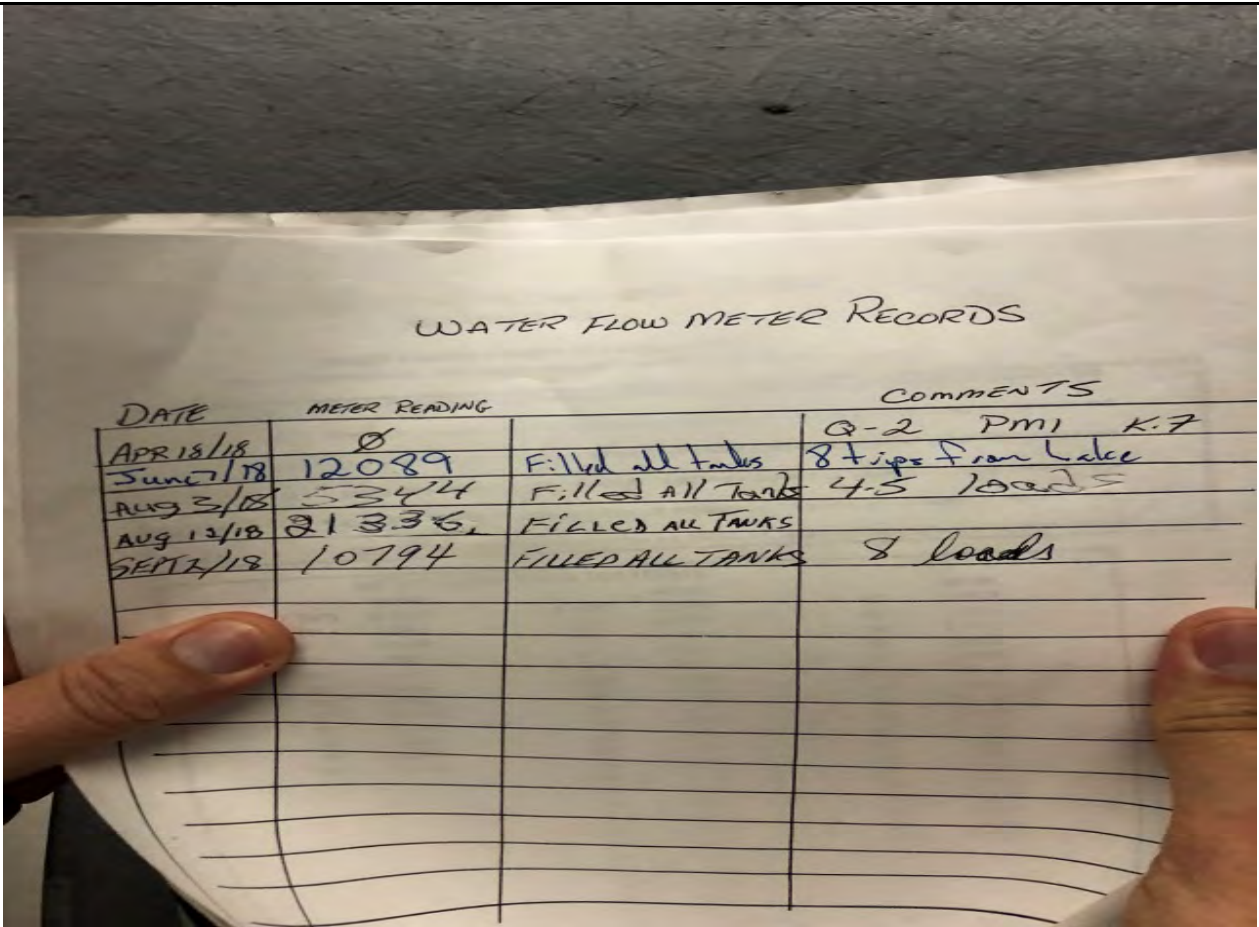 WATER FLOW METER RECORDS
DATE METER READING COMMENTS
APR 18/18 Ø Q-2 PMI K.7
June 7/18 12089 Filled all tanks 8 trips from Lake
Aug 3/18 5344 Filled All Tanks 4-5 loads
AUG 12/18 21336. FILLED ALL TANKS
SEPT 2/18 10794 FILLED ALL TANKS 8 loads